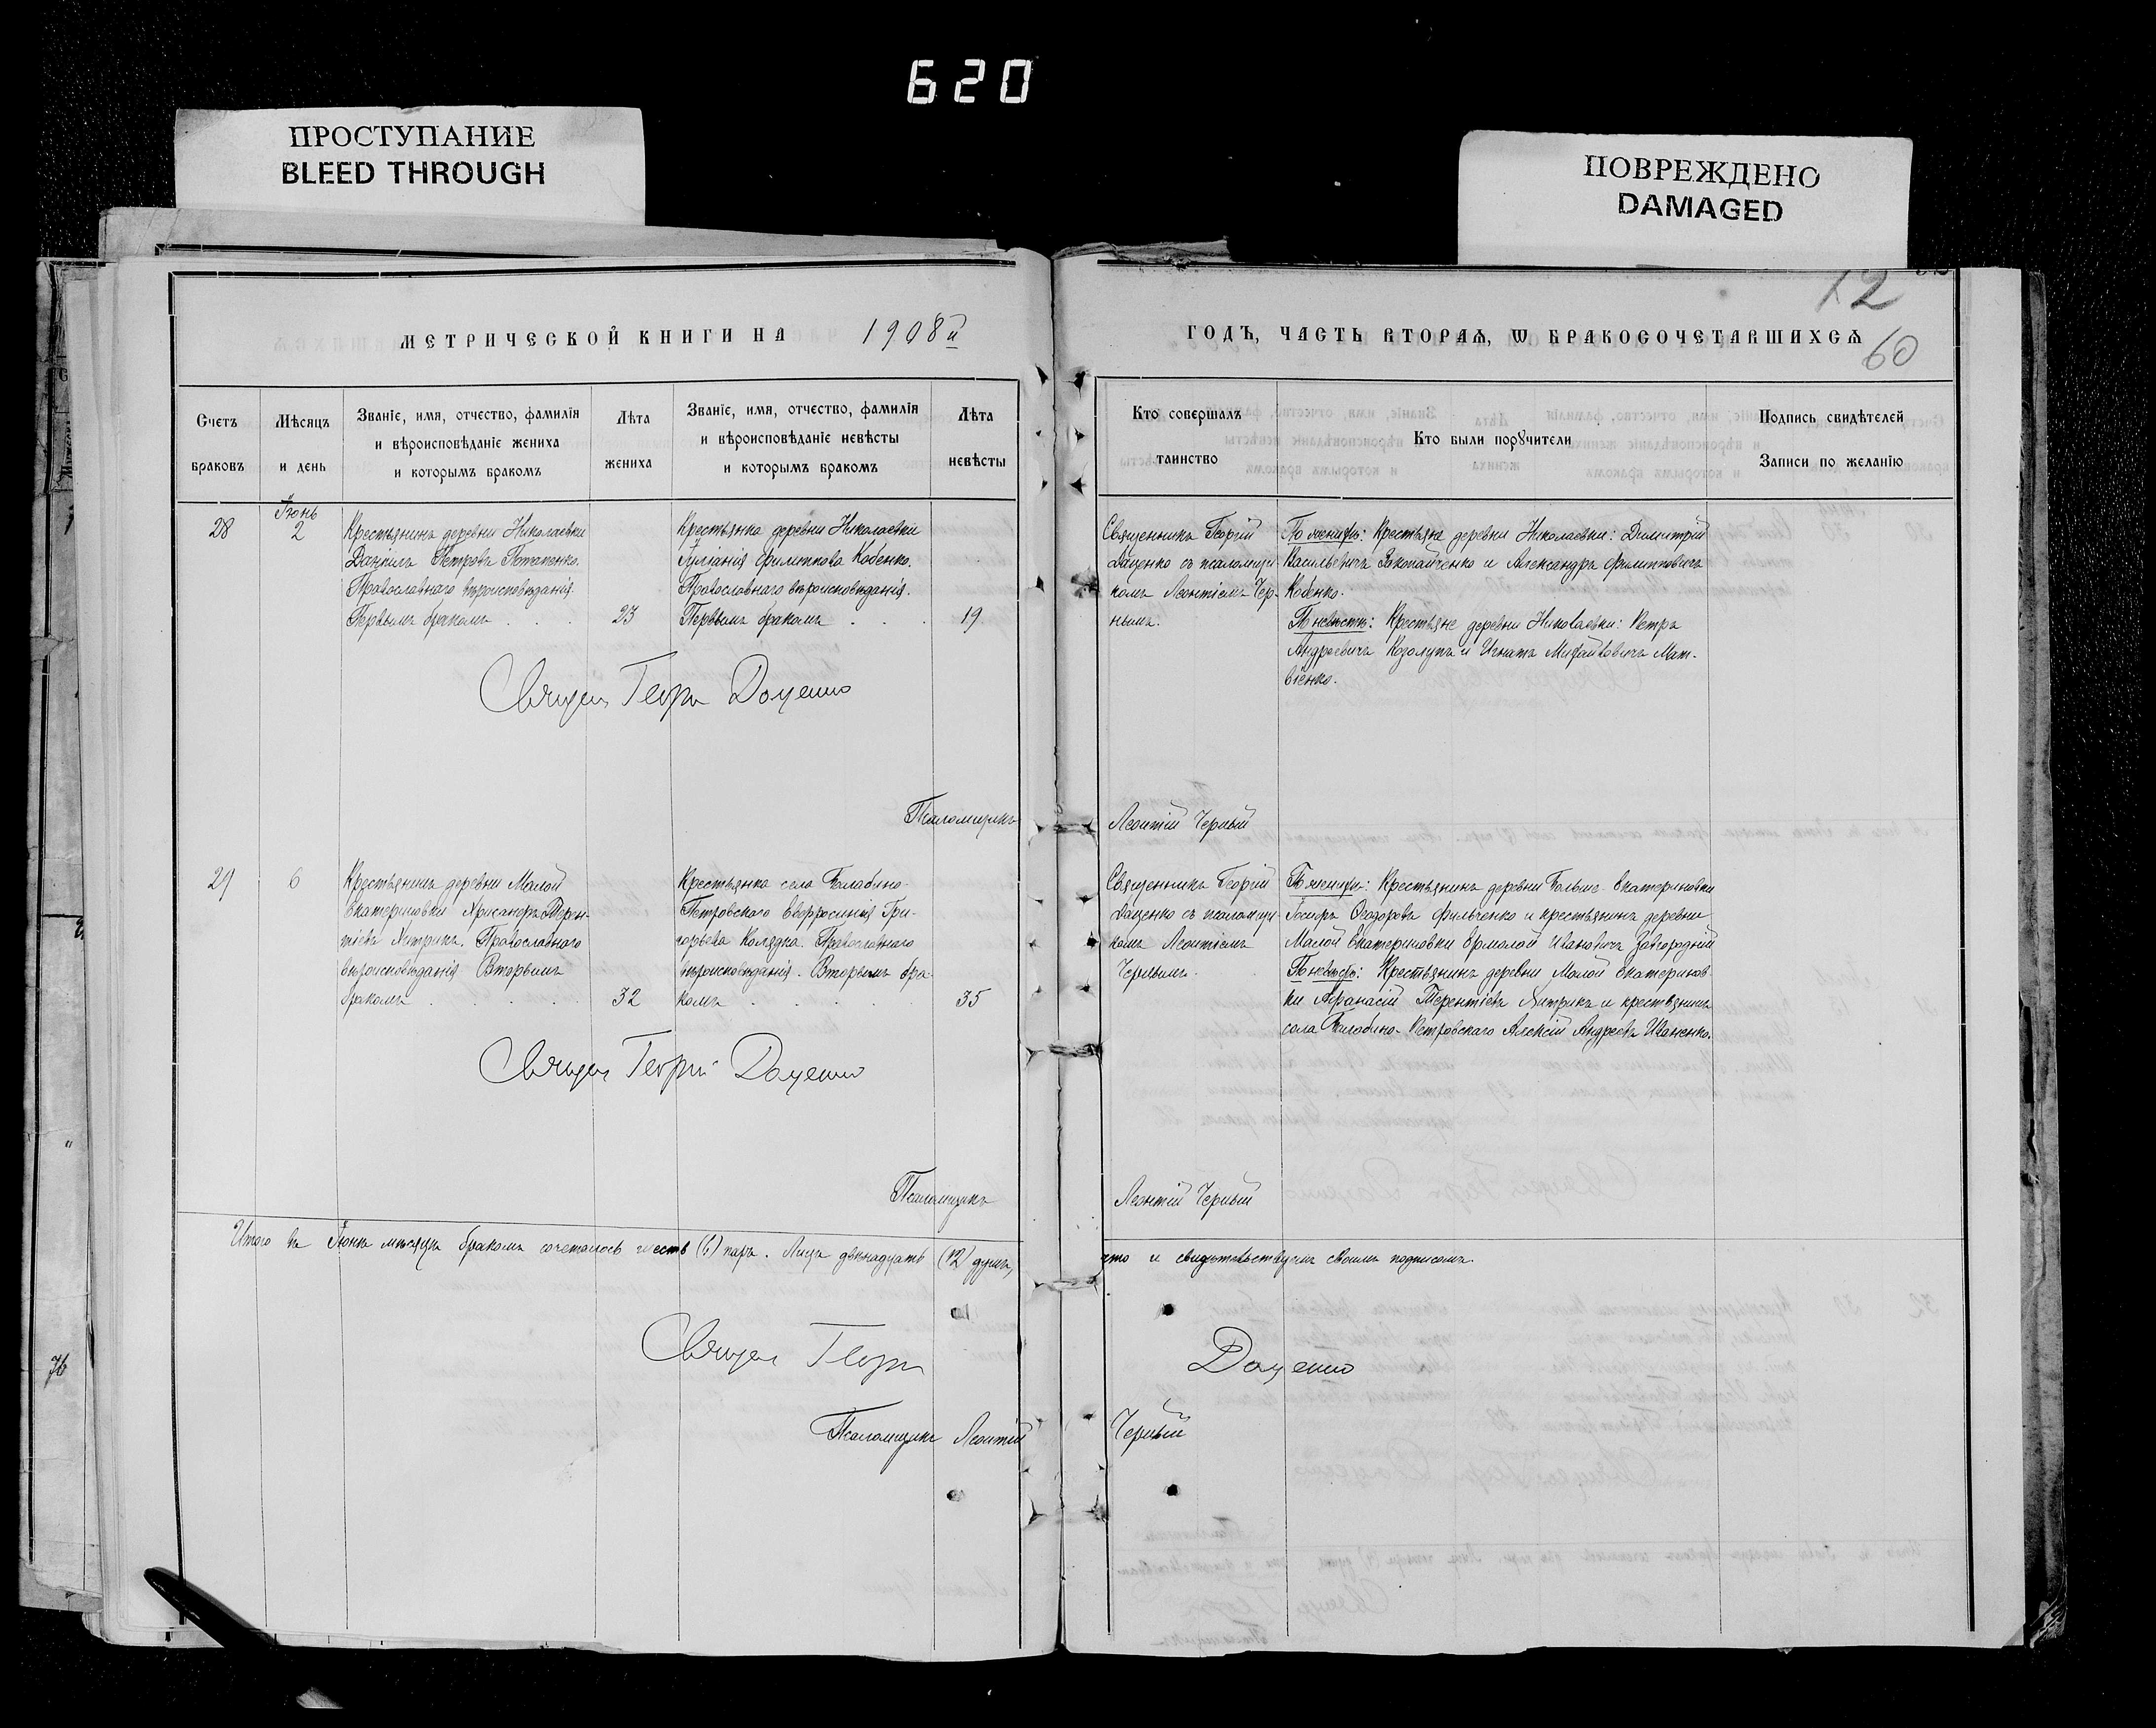 620
ПРОСТУПАНИЕ
BLEED THROUGH
ПОВРЕЖДЕНО
DAMAGED
12
МЕТРИЧЕСКОЙ КНИГИ НА 1908й
ГОДЪ, ЧАСТЬ ВТОРАѦ, Ѡ БРАКОСОЧЕТАВШИХСѦ
60
Счетъ
браковъ
Мѣсяцъ
и день
Званіе, имя, отчество, фамилія
и вѣроисповѣданіе жениха
и которымъ бракомъ
Лѣта
жениха
Званіе, имя, отчество, фамилія
и вѣроисповѣданіе невѣсты
и которымъ бракомъ
Лѣта
невѣсты
Кто совершалъ
таинство
Кто были порꙋчители
Подпись свидѣтелей
Записи по желанію
28
Іюнь
2
Крестьянинъ деревни Николаевки
Даніилъ Петровъ Потапенко.
Православнаго вѣроисповѣданія.
Первымъ бракомъ . . .
23
Крестьянка деревни Николаевки
Іуліанія Филиппова Кобенко.
Православнаго вѣроисповѣданія.
Первымъ бракомъ . . .
19
Священникъ Георгій
Даценко съ псаломщи-
комъ Леонтіемъ Чер-
нымъ.
По женихѣ: Крестьяне деревни Николаевки: Димитрій
Васильевичъ Закопайченко и Александръ Филипповичъ
Кобенко.
По невѣстѣ: Крестьяне деревни Николаевки: Петръ
Андреевичъ Козолупъ и Игнатъ Михайловичъ Мат-
віенко.
Священ Георгій Доценко
Псаломщикъ Леонтій Черный
29
6
Крестьянинъ деревни Малой
Екатериновки Хрисанфъ Терен-
тіевъ Хитрикъ. Православнаго
вѣроисповѣданія Вторымъ
бракомъ . . . .
32
Крестьянка села Балабино-
Петровскаго Евфросинія Гри-
горьева Колядка. Православнаго
вѣроисповѣданія. Вторымъ бра-
комъ . . . .
35
Священникъ Георгій
Даценко съ псаломщи-
комъ Леонтіемъ
Чернымъ.
По женихѣ: Крестьянинъ деревни Больше-Екатериновки
Ѳеодоровъ Фильченко и крестьянинъ деревни
Малой Екатериновки Ермолай Ивановичъ Завгородній
По невѣстѣ: Крестьянинъ деревни Малой Екатеринов-
ки Афанасій Терентіевъ Хитрикъ и крестьянинъ
села Балабино-Петровскаго Алексій Андреевъ Иваненко.
Священ Георгій Доценко
Псаломщикъ Леонтій Черный
Итого въ Іюнѣ мѣсяцѣ бракомъ сочеталось шесть (6) паръ. Лицъ двѣнадцать (12) душъ, что и свидѣтельствуемъ своимъ подписомъ.
Священ Георгій Доценко
Псаломщикъ Леонтій Черный
76